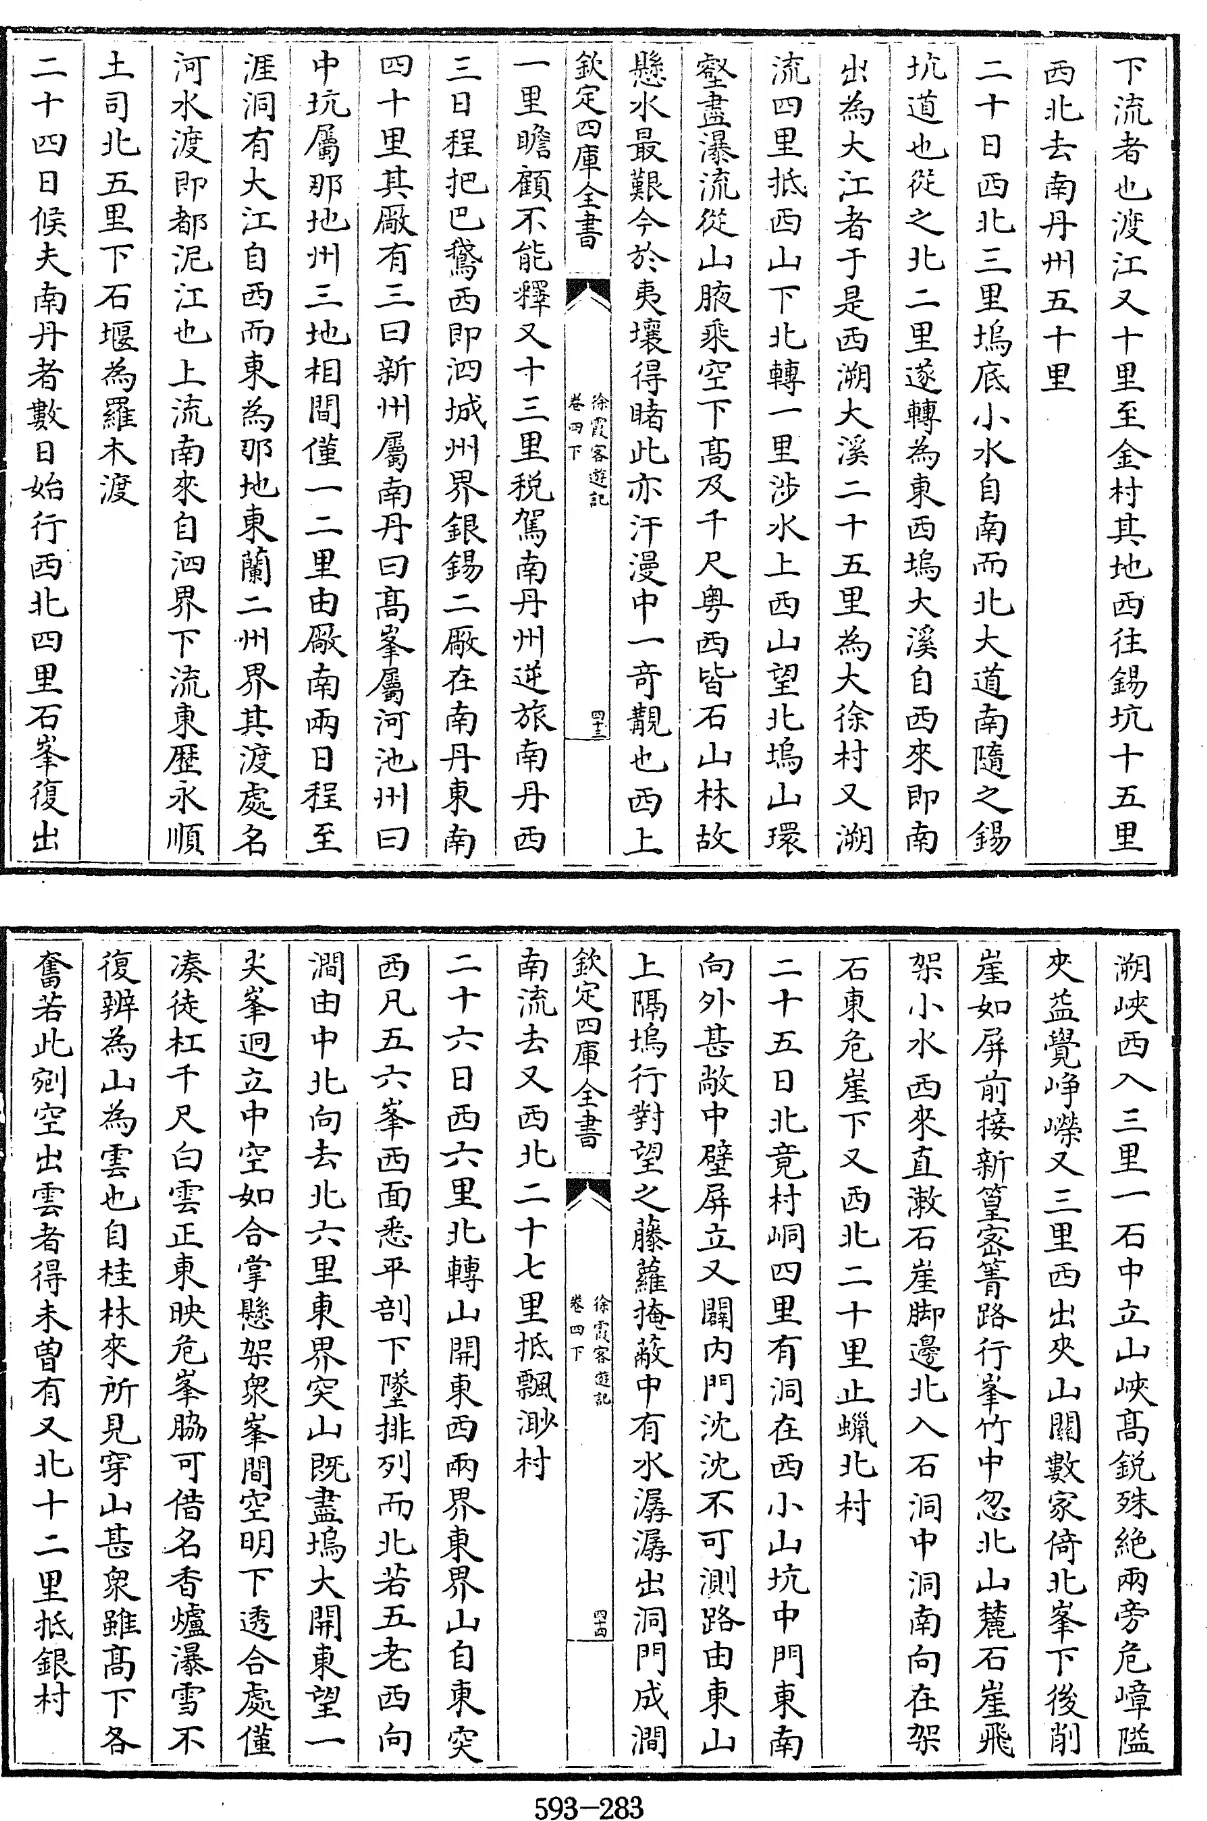 下流者也渡江又十里至金村其地西往錫坑十五里
西北去南丹州五十里
二十日西北三里塢底小水自南而北大道南隨之錫
坑道也從之北二里遂轉為東西塢大溪自西來即南
出為大江者于是西溯大溪二十五里為大徐村又溯
流四里抵西山下北轉一里涉水上西山望北塢山環
壑盡瀑流從山腋乘空下髙及千尺粤西皆石山林故
懸水最艱今於夷壤得睹此亦汗漫中一奇覯也西上
欽定四庫全書
徐霞客遊記
卷四下
四十三
一里瞻顧不能釋又十三里税駕南丹州逆旅南丹西
三日程把巴鵞西即泗城州界銀錫二厰在南丹東南
四十里其厰有三曰新州屬南丹曰髙峯屬河池州曰
中坑屬那地州三地相間僅一二里由厰南兩日程至
涯洞有大江自西而東為那地東蘭二州界其渡處名
河水渡即都泥江也上流南來自泗界下流東歷永順
土司北五里下石堰為羅木渡
二十四日候夫南丹者數日始行西北四里石峯復出
溯峽西入三里一石中立山峽髙銳殊絶兩旁危嶂隘
夾益覺崢嶸又三里西出夾山關數家倚北峯下後削
崖如屏前接新篁宻箐路行峯竹中忽北山麓石崖飛
架小水西來直漱石崖脚邊北入石洞中洞南向在架
石東危崖下又西北二十里止蠟北村
二十五日北竟村峒四里有洞在西小山坑中門東南
向外甚敞中壁屏立又闢内門沈沈不可測路由東山
上隔塢行對望之藤蘿掩蔽中有水潺潺出洞門成澗
欽定四庫全書
徐霞客遊記
卷四下
四十四
南流去又西北二十七里抵飄渺村
二十六日西六里北轉山開東西兩界東界山自東突
西凡五六峯西面悉平剖下墜排列而北若五老西向
澗由中北向去北六里東界突山既盡塢大開東望一
尖峯迥立中空如合掌懸架衆峯間空明下透合處僅
凑徒杠千尺白雲正東映危峯脇可借名香爐瀑雪不
復辨為山為雲也自桂林來所見穿山甚衆雖髙下各
奮若此剜空出雲者得未曽有又北十二里抵銀村
593-283